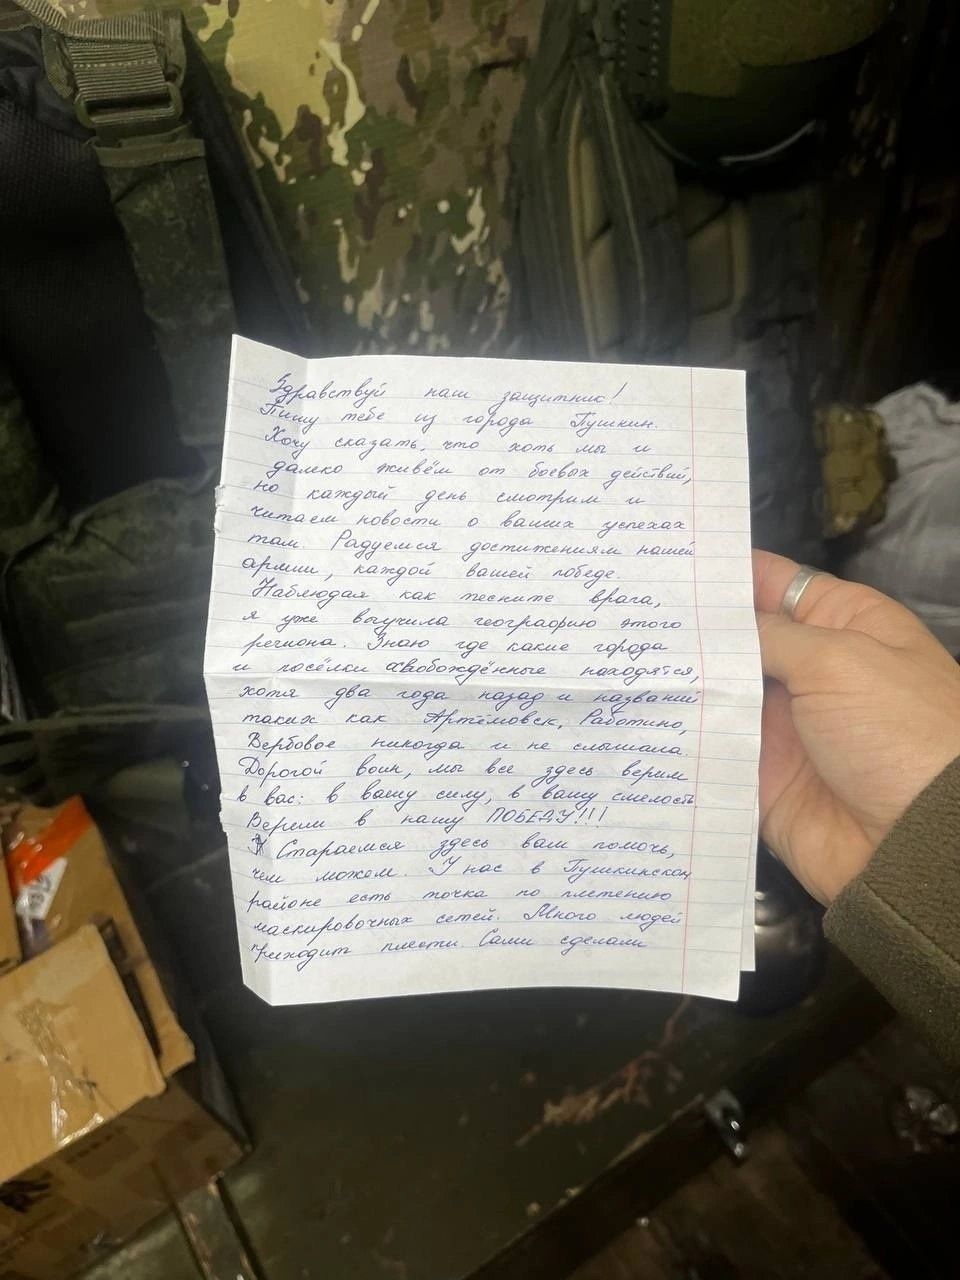 Здравствуй наш защитник!
Пишу тебе из города Пушкин.
Хочу сказать, что хоть мы и
далеко живём от боевых действий,
но каждый день смотрим и
читаем новости о ваших успехах
там. Радуемся достижениям нашей
армии, каждой вашей победе.
Наблюдая как тесните врага,
я уже выучила географию этого
региона. Знаю где какие города
и посёлки освобождённые находятся,
хотя два года назад и названий
таких как Артёмовск, Работино,
Вербовое никогда и не слышала.
Дорогой воин, мы все здесь верим
в вас: в вашу силу, в вашу смелость
Верим в нашу ПОБЕДУ!!!
Стараемся здесь вам помочь,
чем можем. У нас в Пушкинском
районе есть точка по плетению
маскировочных сетей. Много людей
приходит плести. Сами сделали